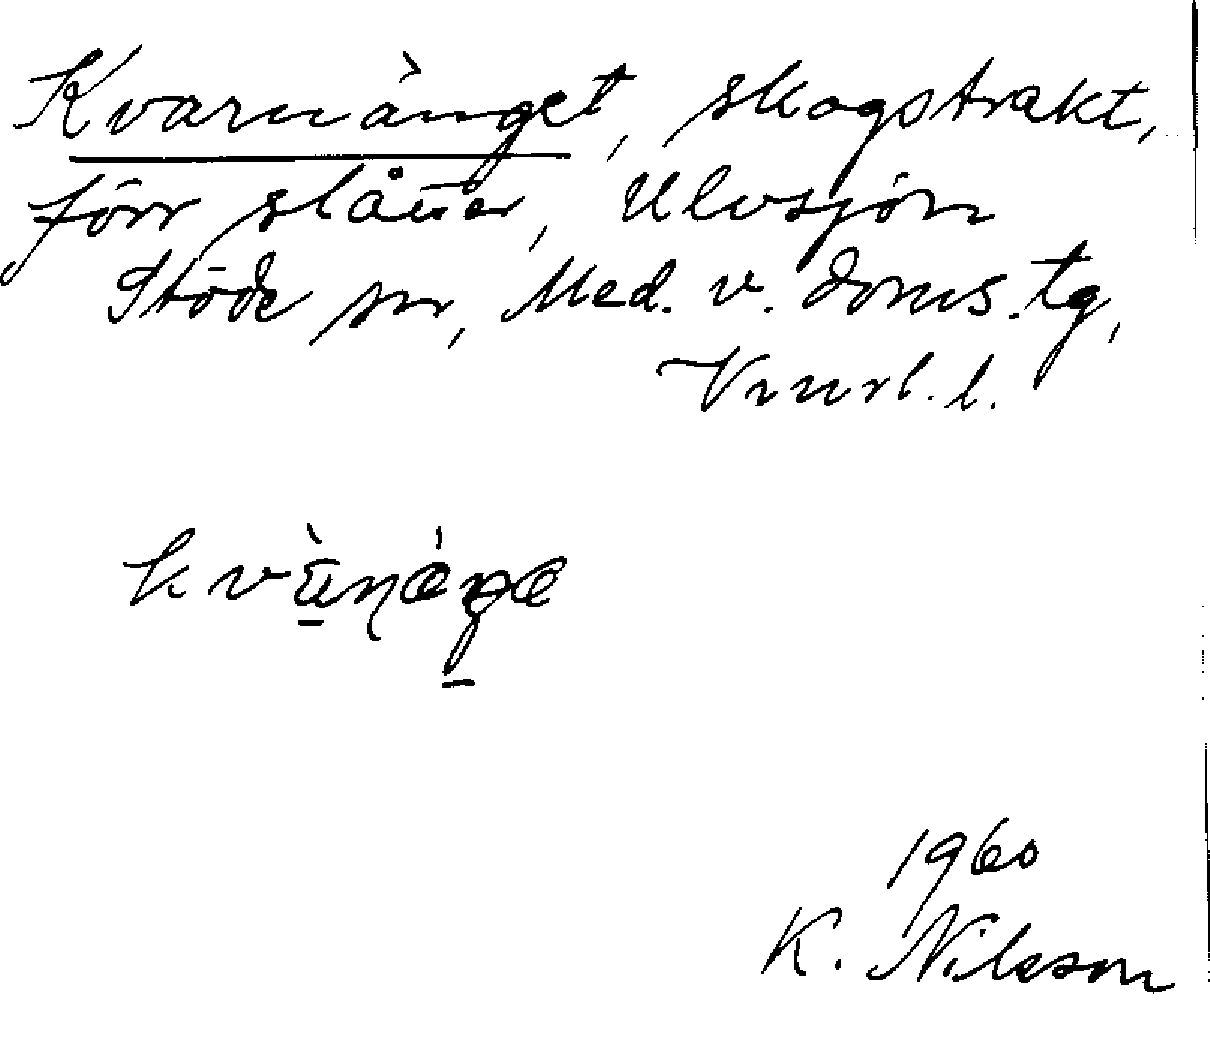 Kvarnänget, skogstrakt,
förr slåtter, Ulvsjön
Stöde sn, Med. v. doms. tg,
Vnorl. l.
1960
K. Nilsson